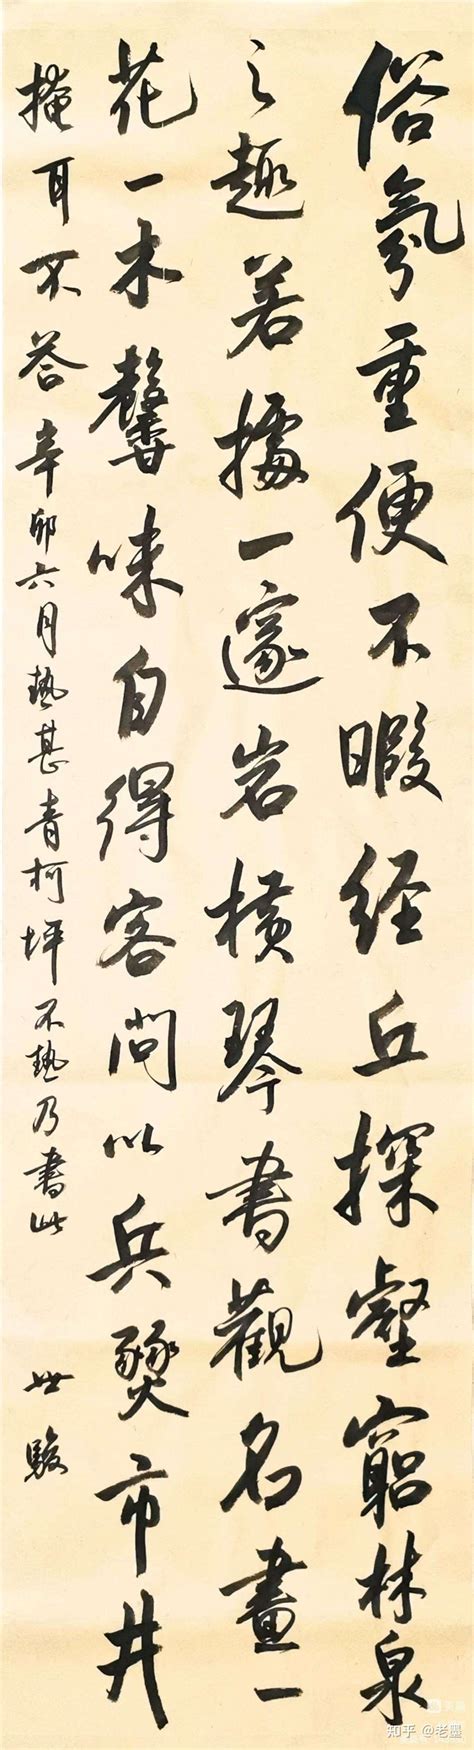 俗氛重便不暇经丘探壑窮林泉
之趣若據一邃岩橫琴書觀名畫一
花一木馨味自得客问以兵燹市井
掩耳不答辛卯六月熱甚青柯坪不熱乃書此
世駿
知乎 @老墨